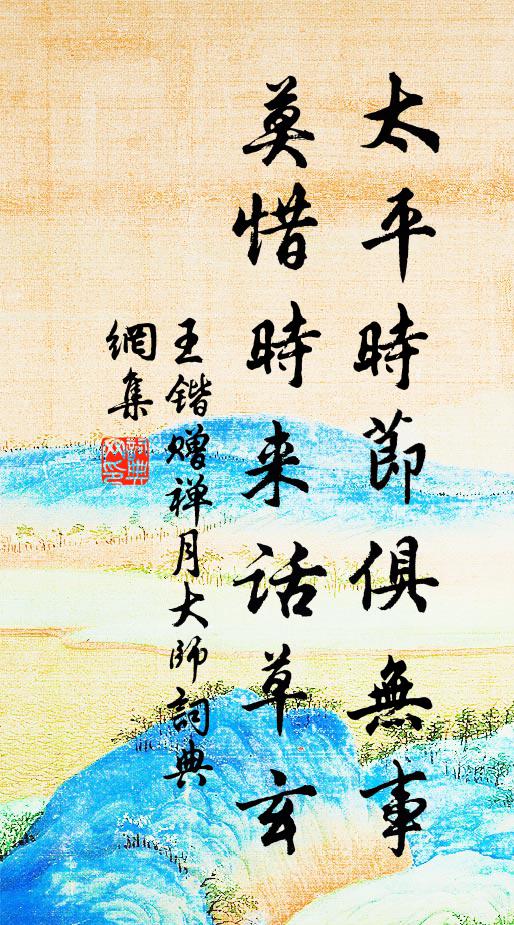 太平時節俱無事
莫惜時来話草玄
王鍇贈禅月大師詞典
網集